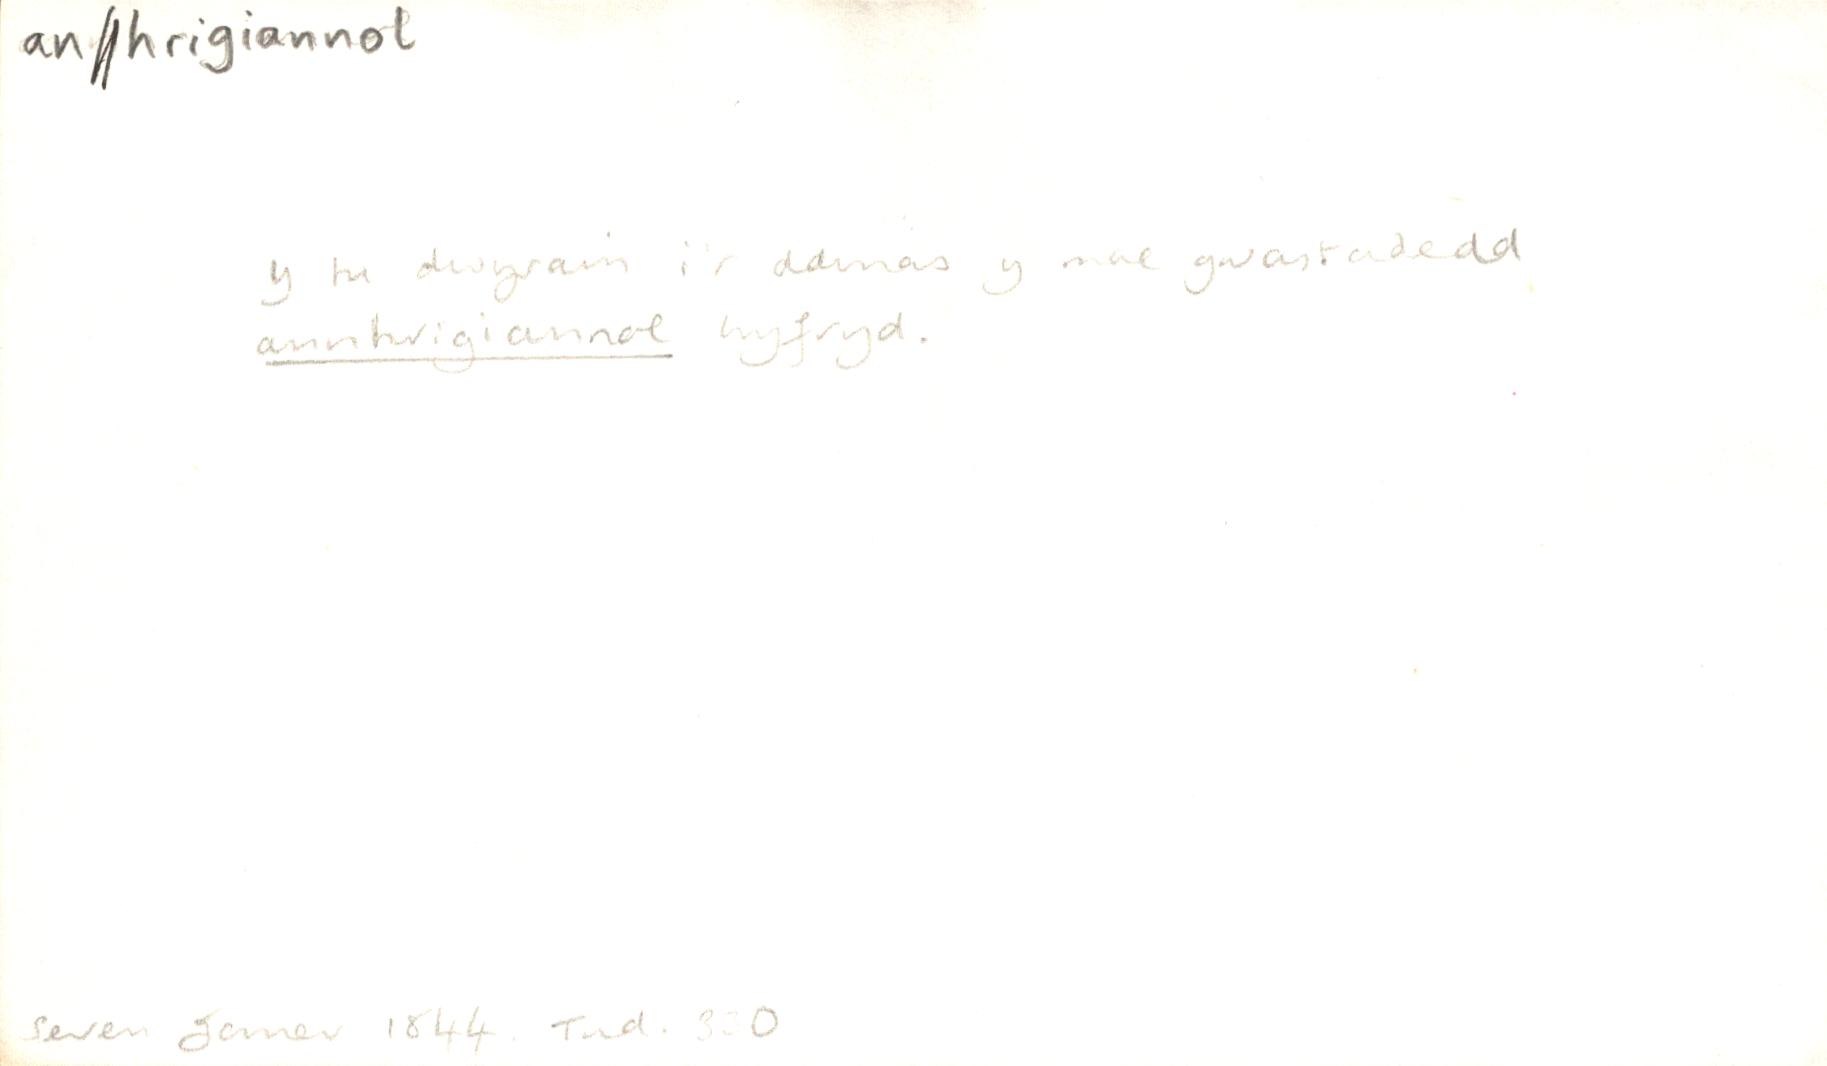 anhrigiannol
y tu dwyrain i'r ddinas y mae gwastadedd
annhrigiannol hyfryd.
Seren Gomer 1844. Tud. 330